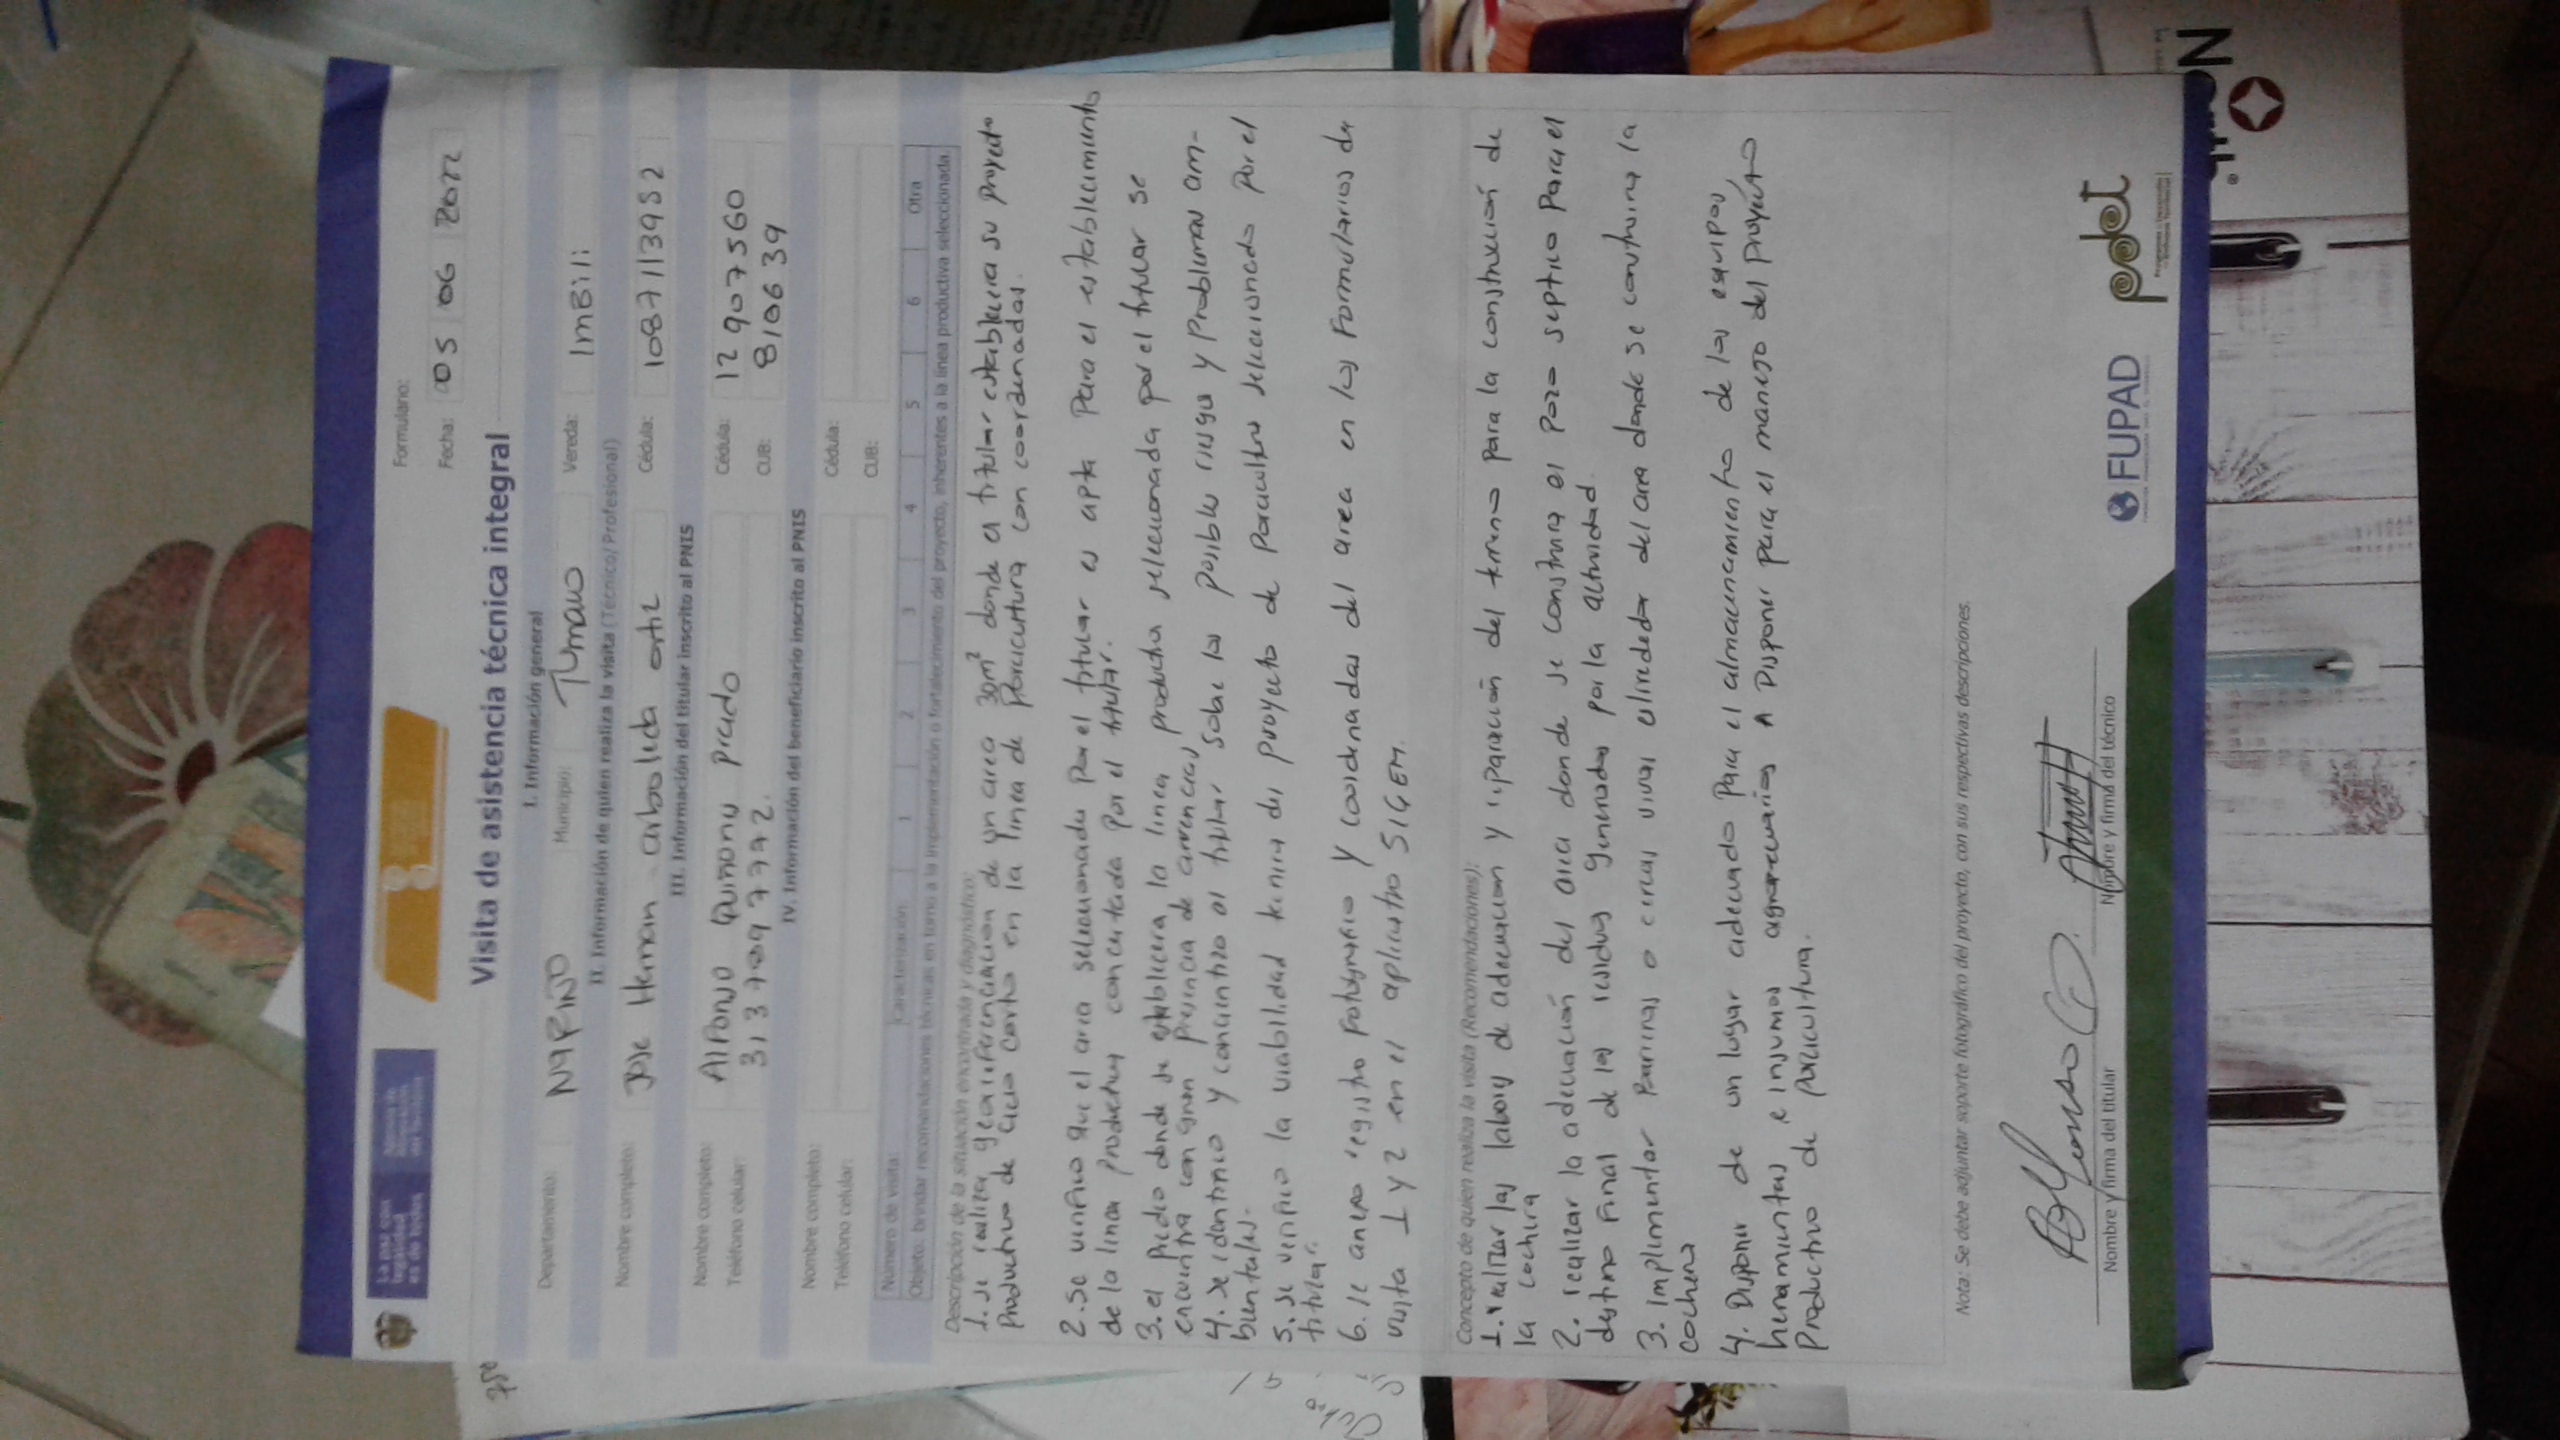 La paz con
legalidad
es de todos
Formulario:
Fecha: 05 06 2022
Visita de asistencia técnica integral
I. Información general
Departamento: NARIÑO Municipio: TUmaco Vereda: ImBili
II. Información de quien realiza la visita (Técnico/ Profesional)
Nombre completo: Jose Hernan arboleda ortiz Cédula: 1087113952
III. Información del titular inscrito al PNIS
Nombre completo: AlFonso Quiñones Prado Cédula: 12 907560
Teléfono celular: 3137097772. CUB: 8106639
IV. Información del beneficiario inscrito al PNIS
Nombre completo: Cédula:
Teléfono celular: CUB:
Número de visita: Caracterización 1 2 3 4 5 6 Otra
Objeto: brindar recomendaciones técnicas en torno a la implementación o fortalecimiento del proyecto, inherentes a la línea productiva seleccionada.
Descripción de la situación encontrada y diagnóstico:
1. se realiza georeferenciacion de un area 30m² donde el titular establecera su proyecto
Productivo de ciclo corto en la linea de porcicultura con coordenadas.
2. Se verifico que el area seleccionada por el titular es apta para el establecimiento
de la linea productiva concertada por el titular.
3. el predio donde se establecera la linea productiva seleccionada por el titular se
encuentra con gran presencia de arvenses
4. se identifico y concientizo al titular sobre los posibles riesgos y problemas am-
bientales.
5. se verifico la viabilidad tecnica del proyecto de Porcicultura seleccionado por el
titular.
6. se anexo registro fotografico y coordenadas del area en los formularios de
visita 1 y 2 en el aplicativo SIGEM.
Concepto de quien realiza la visita (Recomendaciones):
1. realizar las labores de adecuacion y reparación del terreno para la construcción de
la cochera
2. realizar la adecuación del area donde se construira el pozo septico para el
destino final de los residuos generados por la actividad.
3. implementar barreras o cercas vivas alrededor del area donde se construira la
cochera
4. Disponer de un lugar adecuado para el almacenamiento de los equipos
herramientas e insumos agropecuarios A Disponer para el manejo del proyecto
Productivo de porcicultura.
Nota: Se debe adjuntar soporte fotográfico del proyecto, con sus respectivas descripciones.
Alfonso Q.
Nombre y firma del titular Nombre y firma del técnico
FUPAD pdet